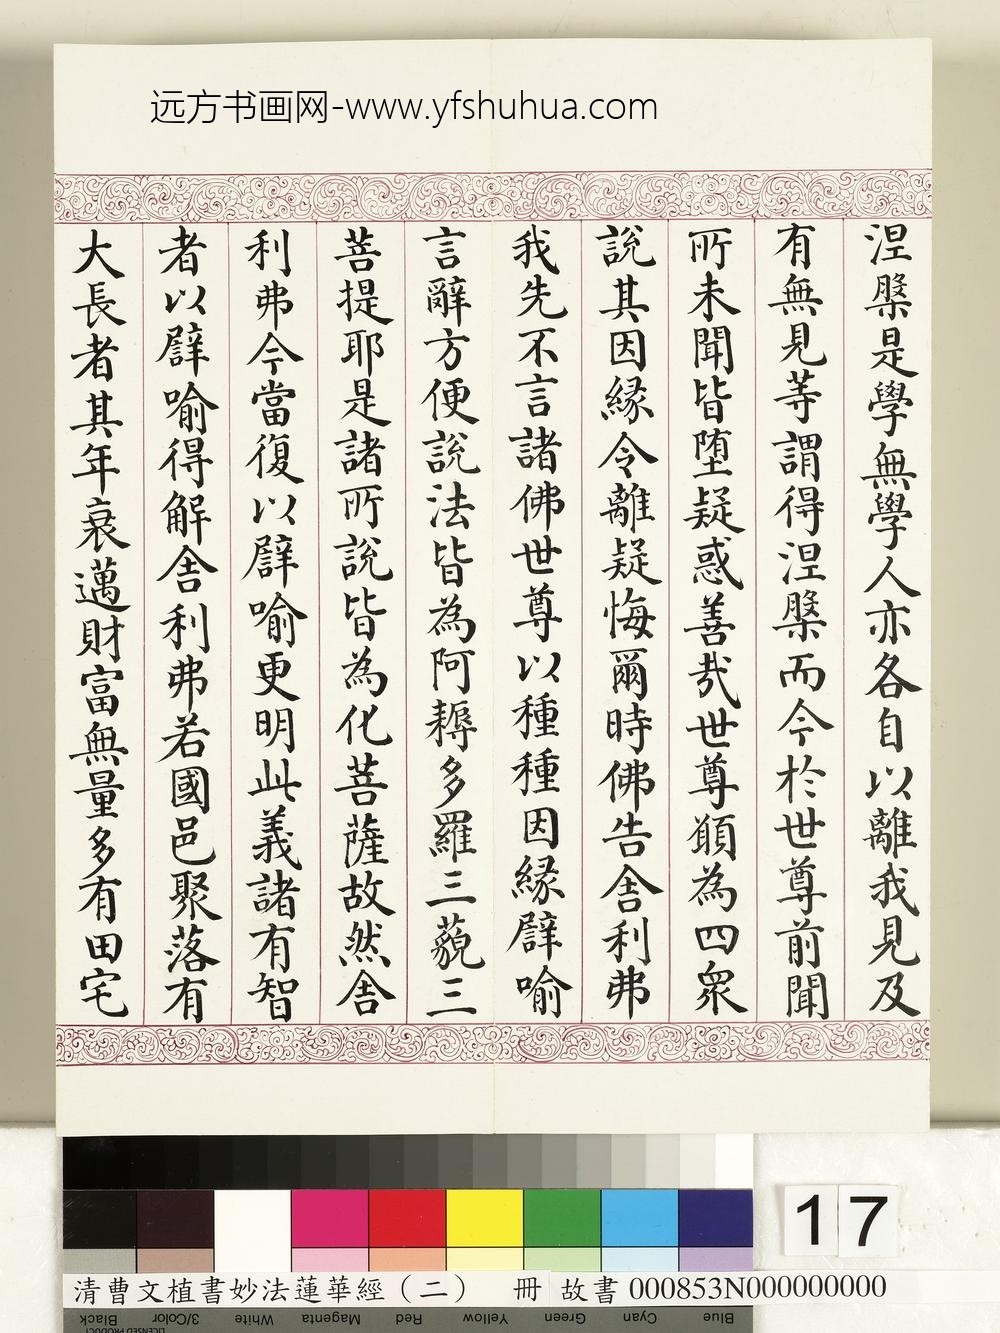 远方书画网-www.yfshuhua.com
涅槃是學無學人亦各自以離我見及
有無見等謂得涅槃而今於世尊前聞
所未聞皆墮疑惑善哉世尊願為四衆
說其因緣令離疑悔爾時佛告舍利弗
我先不言諸佛世尊以種種因緣譬喻
言辭方便說法皆為阿耨多羅三藐三
菩提耶是諸所說皆為化菩薩故然舍
利弗今當復以譬喻更明此義諸有智
者以譬喻得解舍利弗若國邑聚落有
大長者其年衰邁財富無量多有田宅
17
清曹文植書妙法蓮華經（二） 冊 故書 000853N000000000
Black 3/Color White Magenta Red Yellow Green Cyan Blue
LICENSED PRODUCT